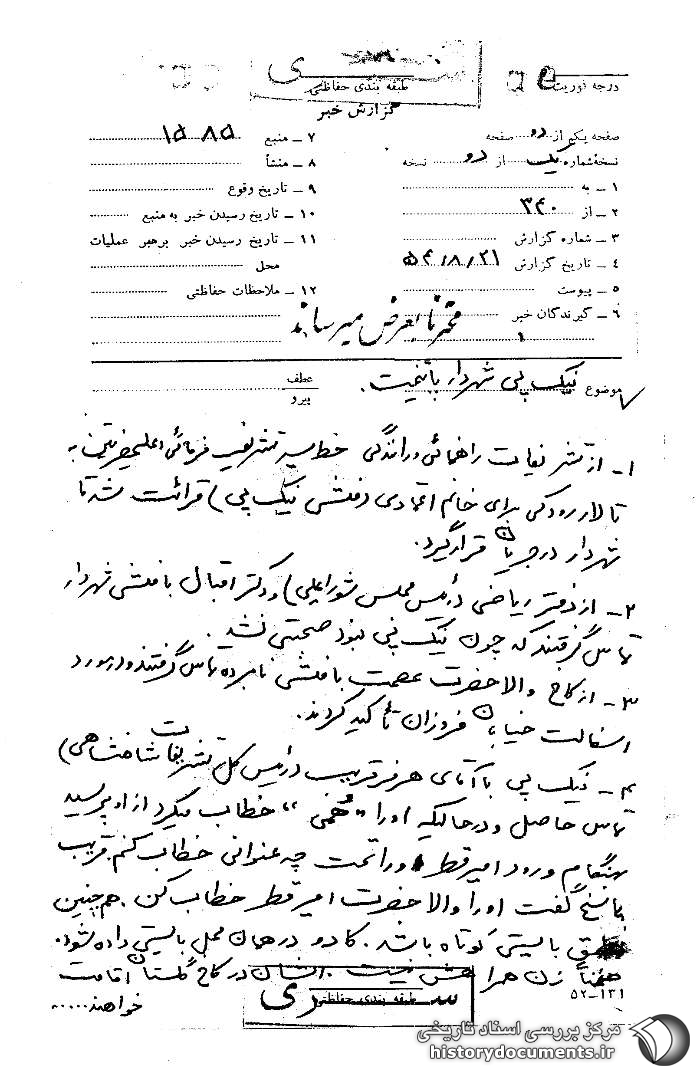 سری
طبقه بندی حفاظتی
گزارش خبر
درجه فوریت
صفحه یکم از دو صفحه
نسخهٔ شماره یک از دو نسخه
۱ – به
۲ – از ۳۴۰
۳ – شماره گزارش
۴ – تاریخ گزارش ۵۴/۸/۲۱
۵ – پیوست
۶ – گیرندگان خبر
۷ – منبع ۱۵۸۵
۸ – منشأ
۹ – تاریخ وقوع
۱۰ – تاریخ رسیدن خبر به منبع
۱۱ – تاریخ رسیدن خبر برهبر عملیات
محل
۱۲ – ملاحظات حفاظتی
محترماً بعرض میرساند
۱
موضوع نیک پی شهردار پایتخت.
عطف
پیرو
۱- از تشریفات راهنمائی و رانندگی خط سیر تشریف فرمائی اعلیحضرتین به
تالار رودکی برای خانم اعتمادی (منشی نیک پی) قرائت شد تا
شهردار درجریان قرارگیرد.
۲- از دفتر ریاضی (رئیس مجلس شورایملی) و دکتر اقبال با منشی شهردار
تماس گرفتند که چون نیک پی نبود صحبتی نشد.
۳- از کاخ والاحضرت عصمت با منشی نامبرده تماس گرفتند و درمورد
اسفالت خیابان فروزان تأکید کردند.
۴- نیک پی با آقای هرمز قریب (رئیس کل تشریفات شاهنشاهی)
تماس حاصل و درحالیکه او را "هُمُی" خطاب میکرد از او پرسید
هنگام ورود امیر قطر او را تحت چه عنوانی خطاب کنم قریب
پاسخ گفت او را والاحضرت امیر قطر خطاب کن. هم چنین
نطق بایستی کوتاه باشد. کادو در همان محل بایستی داده شود.
ضمناً زن همراهش نیست. ایشان در کاخ گلستان اقامت
خواهند.....
۵۲–۱۳۱
سری
طبقه بندی حفاظتی
مرکز بررسی اسناد تاریخی
historydocuments.ir